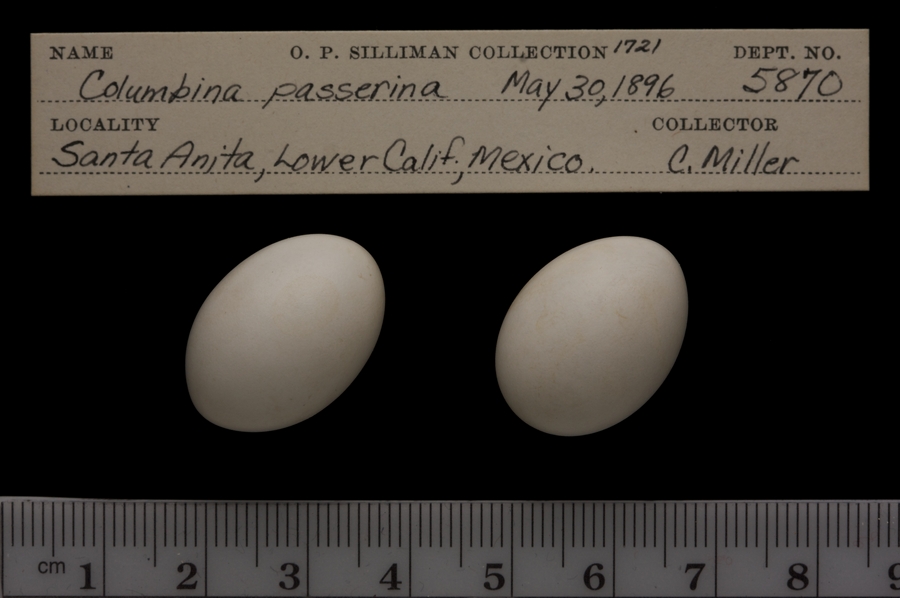 NAME O. P. SILLIMAN COLLECTION 1721 DEPT. NO.
Columbina passerina May 30, 1896 5870
LOCALITY COLLECTOR
Santa Anita, Lower Calif., Mexico. C. Miller
cm 1 2 3 4 5 6 7 8 9